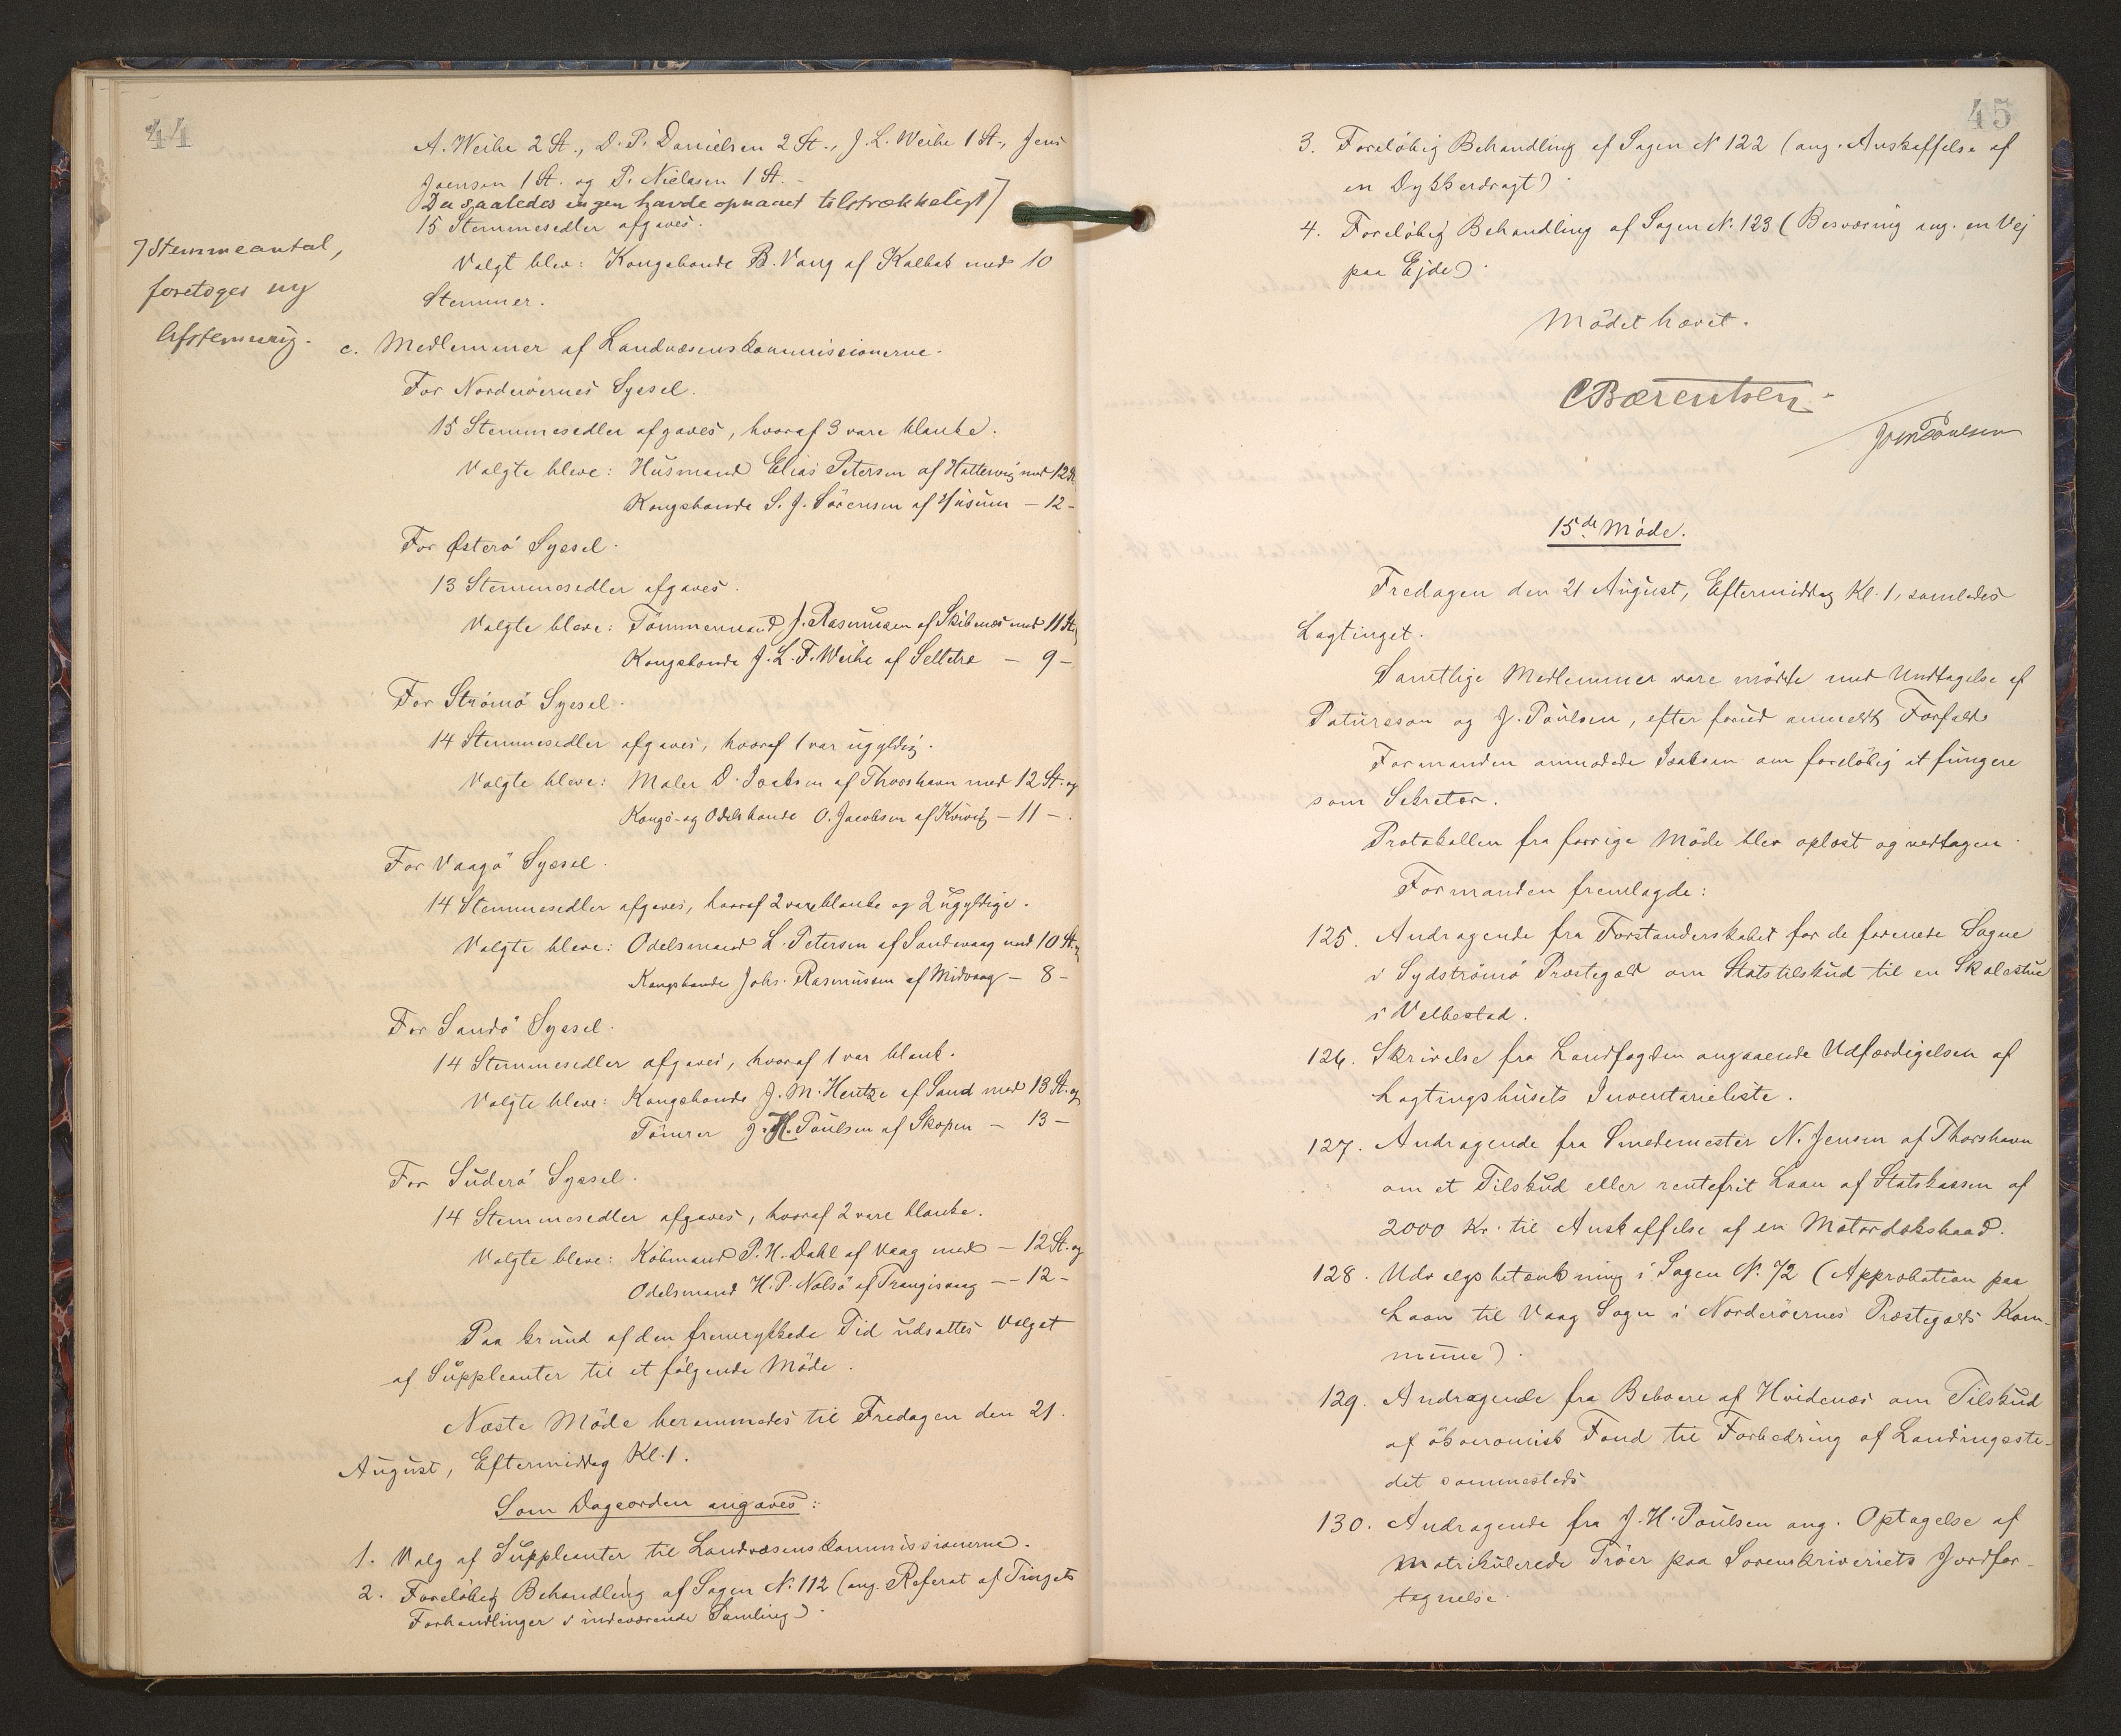 44
A. Weihe 2 St., D. P. Danielsen 2 St., J. L. Weihe 1 St., Jens
Joensen 1 St. og P. Nielasen 1 St. -
Da saaledes ingen havde opnaaet tilstrækkeligt ⌉
15 Stemmesedler afgaves.
⌉ Stemmeantal,
foretoges ny
Afstemning.
Valgt blev: Kongsbonde B. Vang af Kalbak med 10
Stemmer.
c. Medlemmer af Landvæsenskommissionerne.
For Norderöernes Syssel.
15 Stemmesedler afgaves, hvoraf 3 vare blanke.
Valgte bleve: Husmand Elias Petersen af Hattervig med 12 St.
Kongsbonde S. J. Sörensen af Husum - 12 -
For Østerö Syssel.
13 Stemmesedler afgaves.
Valgte bleve: Tömmermand J. Rasmussen af Skibenæs med 11 St.
Kongsbonde J. L. F. Weihe af Selletræ - 9 -
For Strömö Syssel.
14 Stemmesedler afgaves, hvoraf 1 var ugyldig.
Valgte bleve: Maler D. Isaksen af Thorshavn med 12 St. og
Kongs- og Odelsbonde O. Jacobsen af Kvivig - 11 -.
For Vaagö Syssel.
14 Stemmesedler afgaves, hvoraf 2 vare blanke og 2 ugyldige.
Valgte bleve: Odelsmand L. Petersen af Sandevaag med 10 St. og
Kongsbonde Johs. Rasmussen af Midvaag - 8 -
For Sandö Syssel.
14 Stemmesedler afgaves, hvoraf 1 var blank.
Valgte bleve: Kongsbonde J. M. Hentze af Sand med 13 St. og
Tömrer J. H. Poulsen af Skopen - 13 -
For Suderö Syssel.
14 Stemmesedler afgaves, hvoraf 2 vare blanke.
Valgte bleve: Köbmand P. H. Dahl af Vaag med - 12 St. og
Odelsmand H. P. Nolsö af Trangisvaag - - 12 -
Paa Grund af den fremrykkede Tid udsattes Valget
af Suppleanter til et fölgende Möde.
Næste Möde berammedes til Fredagen den 21.
August, Eftermiddag Kl. 1.
Som Dagsorden angaves:
1. Valg af Suppleanter til Landvæsenskommissionerne.
2. Forelöbig Behandling af Sagen N. 112 (ang. Referat af Tingets
Forhandlinger i indeværende Samling).
45
3. Forelöbig Behandling af Sagen N 122 (ang. Anskaffelse af
en Dykkerdragt).
4. Forelöbig Behandling af Sagen N. 123 (Besværing ang. en Vej
paa Ejde).
Mödet hævet.
C Bærentsen.
Joen Poulsen
15de Möde.
Fredagen den 21 August, Eftermiddag Kl. 1, samledes
Lagtinget.
Samtlige Medlemmer vare mödte med Undtagelse af
Patursson og J. Poulsen, efter forud anmeldt Forfald.
Formanden anmodede Isaksen om forelöbig at fungere
som Sekretær.
Protokollen fra forrige Möde blev oplæst og vedtagen.
Formanden fremlagde:
125. Andragende fra Forstanderskabet for de forenede Sogne
i Sydströmö Præstegæld om Statstilskud til en Skolestue
i Velbestad.
126. Skrivelse fra Landfogden angaaende Udfærdigelsen af
Lagtingshusets Inventarieliste.
127. Andragende fra Smedemester N. Jensen af Thorshavn
om et Tilskud eller rentefrit Laan af Statskassen af
2000 Kr. til Anskaffelse af en Motordæksbaad.
128. Udvalgsbetænkning i Sagen N. 72 (Approbation paa
Laan til Vaag Sogn i Norderöernes Præstegælds Kom-
mune).
129. Andragende fra Beboere af Hvidenæs om Tilskud
af ökonomisk Fond til Forbedring af Landingsste-
det sammesteds.
130. Andragende fra J. H. Poulsen ang. Optagelse af
matrikulerede Tröer paa Sorenskriveriets Jordfor-
tegnelse.